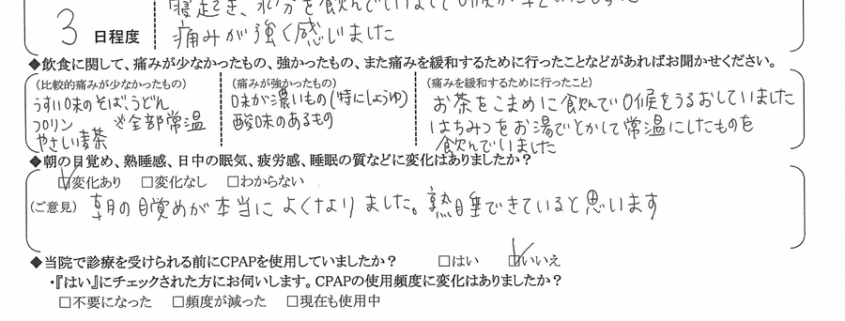 寝起き、水分を飲んでいなくて口喉が
3 日程度
痛みが強く感じました
◆飲食に関して、痛みが少なかったもの、強かったもの、また痛みを緩和するために行ったことなどがあればお聞かせください。
(比較的痛みが少なかったもの)
うすい味のそばうどん
プリン ※全部常温
やさしい麦茶
(痛みが強かったもの)
味が濃いもの(特にしょうゆ)
酸味のあるもの
(痛みを緩和するために行ったこと)
お茶をこまめに飲んで口喉をうるおしていました
はちみつをお湯でとかして常温にしたものを
飲んでいました
◆朝の目覚め、熟睡感、日中の眠気、疲労感、睡眠の質などに変化はありましたか?
☑変化あり □変化なし □わからない
(ご意見) 朝の目覚めが本当によくなりました。熟睡できていると思います
◆当院で診療を受けられる前にCPAPを使用していましたか? □はい ☑いいえ
・『はい』にチェックされた方にお伺いします。CPAPの使用頻度に変化はありましたか?
□不要になった □頻度が減った □現在も使用中